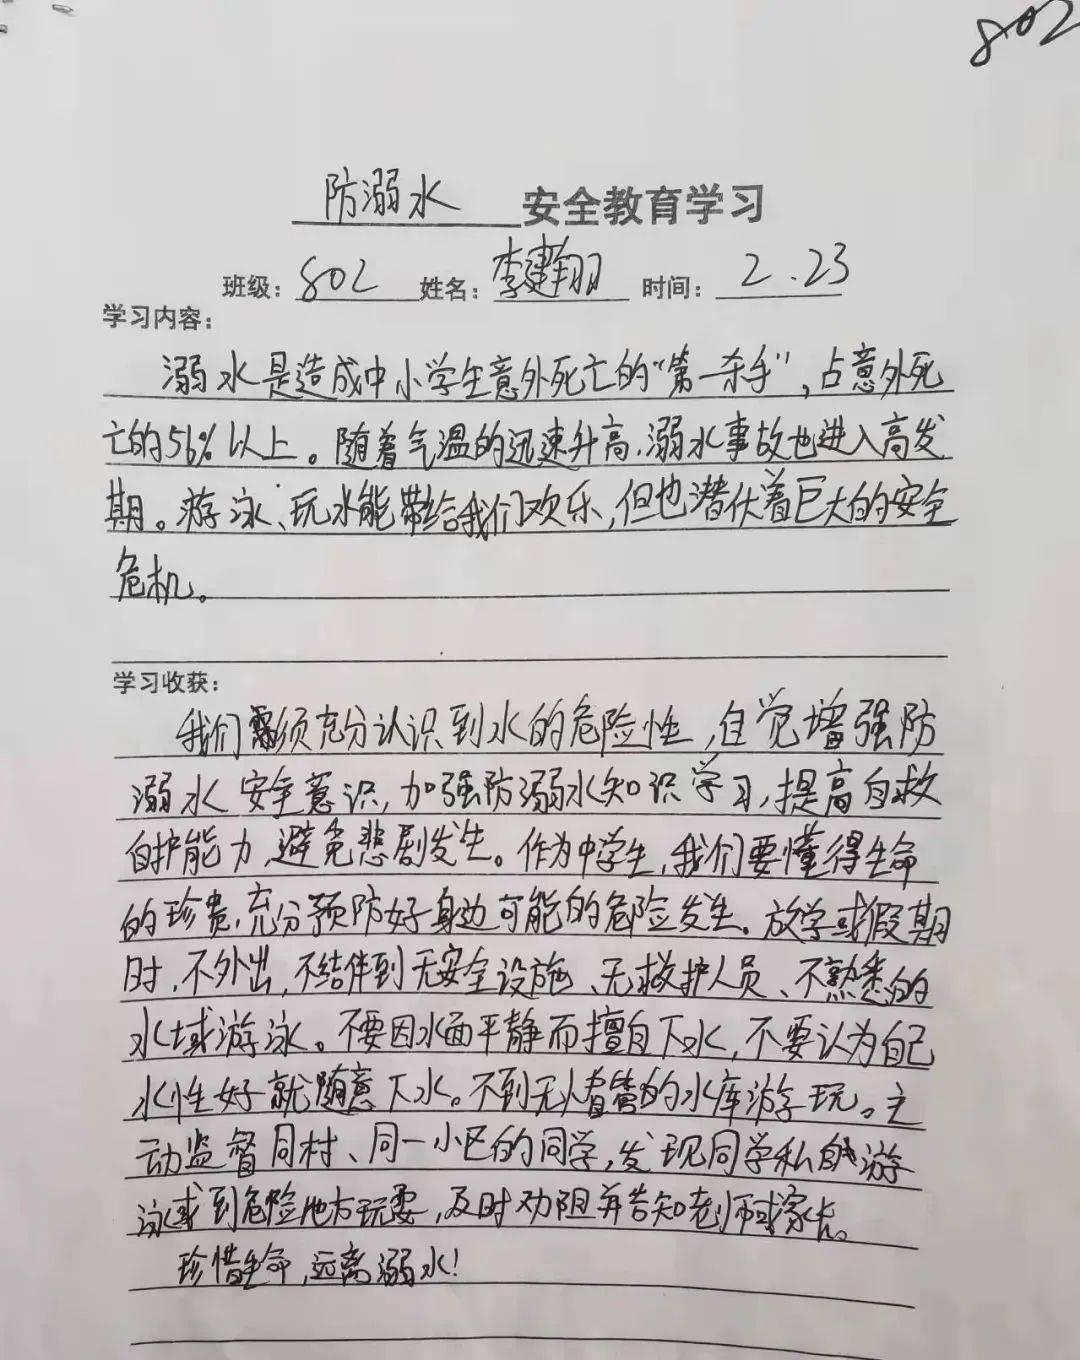 802
防溺水 安全教育学习
班级：802 姓名：李建翔 时间：2.23
学习内容：
溺水是造成中小学生意外死亡的“第一杀手”，占意外死
亡的56%以上。随着气温的迅速升高，溺水事故也进入高发
期。游泳、玩水能带给我们欢乐，但也潜伏着巨大的安全
危机。
学习收获：
我们须充分认识到水的危险性，自觉增强防
溺水安全意识，加强防溺水知识学习，提高自救
自护能力，避免悲剧发生。作为中学生，我们要懂得生命
的珍贵，充分预防好身边可能的危险发生。放学或假期
时，不外出，不结伴到无安全设施、无救护人员、不熟悉的
水域游泳。不要因水面平静而擅自下水，不要认为自己
水性好就随意下水。不到无人看管的水库游玩。主
动监督同村、同一小区的同学，发现同学私自游
泳或到危险地方玩耍，及时劝阻并告知老师或家长。
珍惜生命，远离溺水！